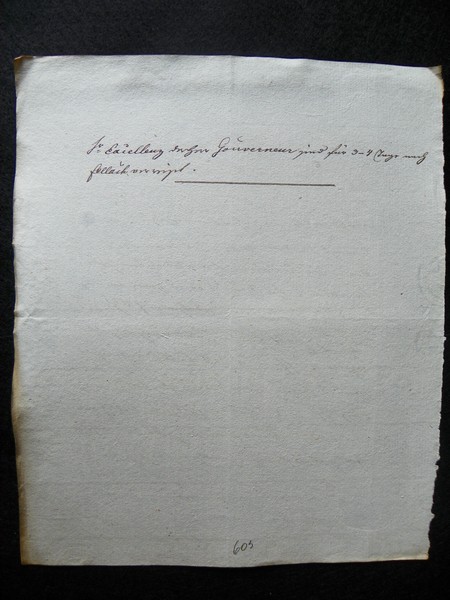 Sr Excellenz der Herr Gouverneur sind für 3-4 Tage nach
verreist.
605